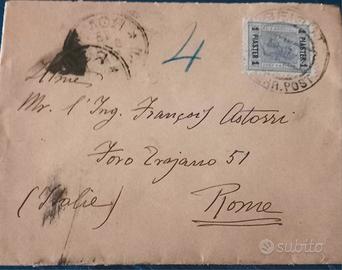 4
1 PIASTER 1
PIASTER
BEIRUT
Mr. l'Ing. François Astorri
Foro Trajano 51
(Italie) Rome
subito